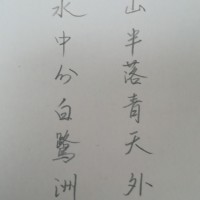 山半落青天外
水中分白鹭洲